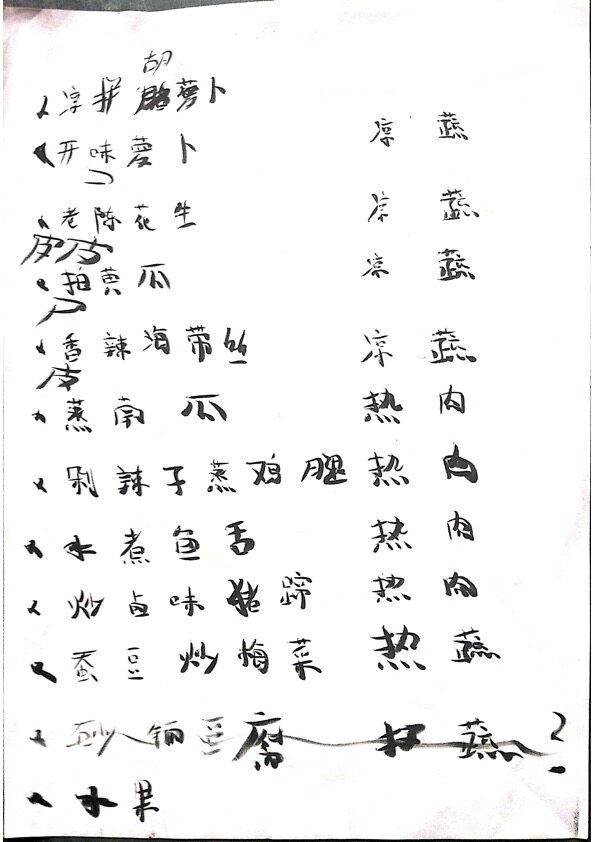 胡
凉拼萝卜
开味萝卜 凉 蔬
老陈花生 凉 蔬
皮皮
拍黄瓜 凉 蔬
香辣海带丝 凉 蔬
皮
蒸南瓜 热 肉
剁辣子蒸鸡腿 热 肉
水煮鱼舌 热 肉
炒卤味猪蹄 热 肉
蚕豆炒梅菜 热 蔬
砂锅豆腐 蔬 ?
水果